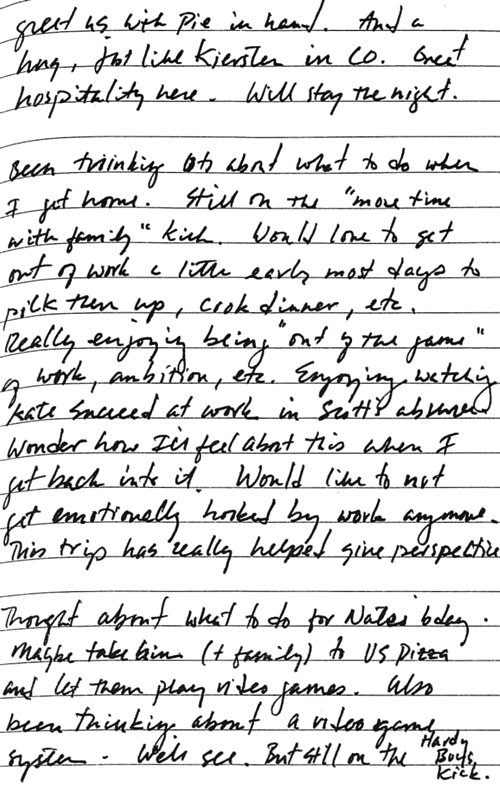 greet us with pie in hand. And a
hug, just like Kiersten in CO. Great
hospitality here. Will stay the night.
Been thinking lots about what to do when
I get home. Still on the "more time
with family" kick. Would love to get
out of work a little early most days to
pick them up, cook dinner, etc.
Really enjoying being "out of the game"
of work, ambition, etc. Enjoying watching
Kate succeed at work in Scott's absence
Wonder how I'll feel about this when I
get back into it. Would like to not
get emotionally hooked by work anymore.
This trip has really helped give perspective
Thought about what to do for Nate's bday.
Maybe take him (+ family) to US Pizza
and let them play video games. Also
been thinking about a video game
system. We'll see. But still on the Hardy
Boys
kick.